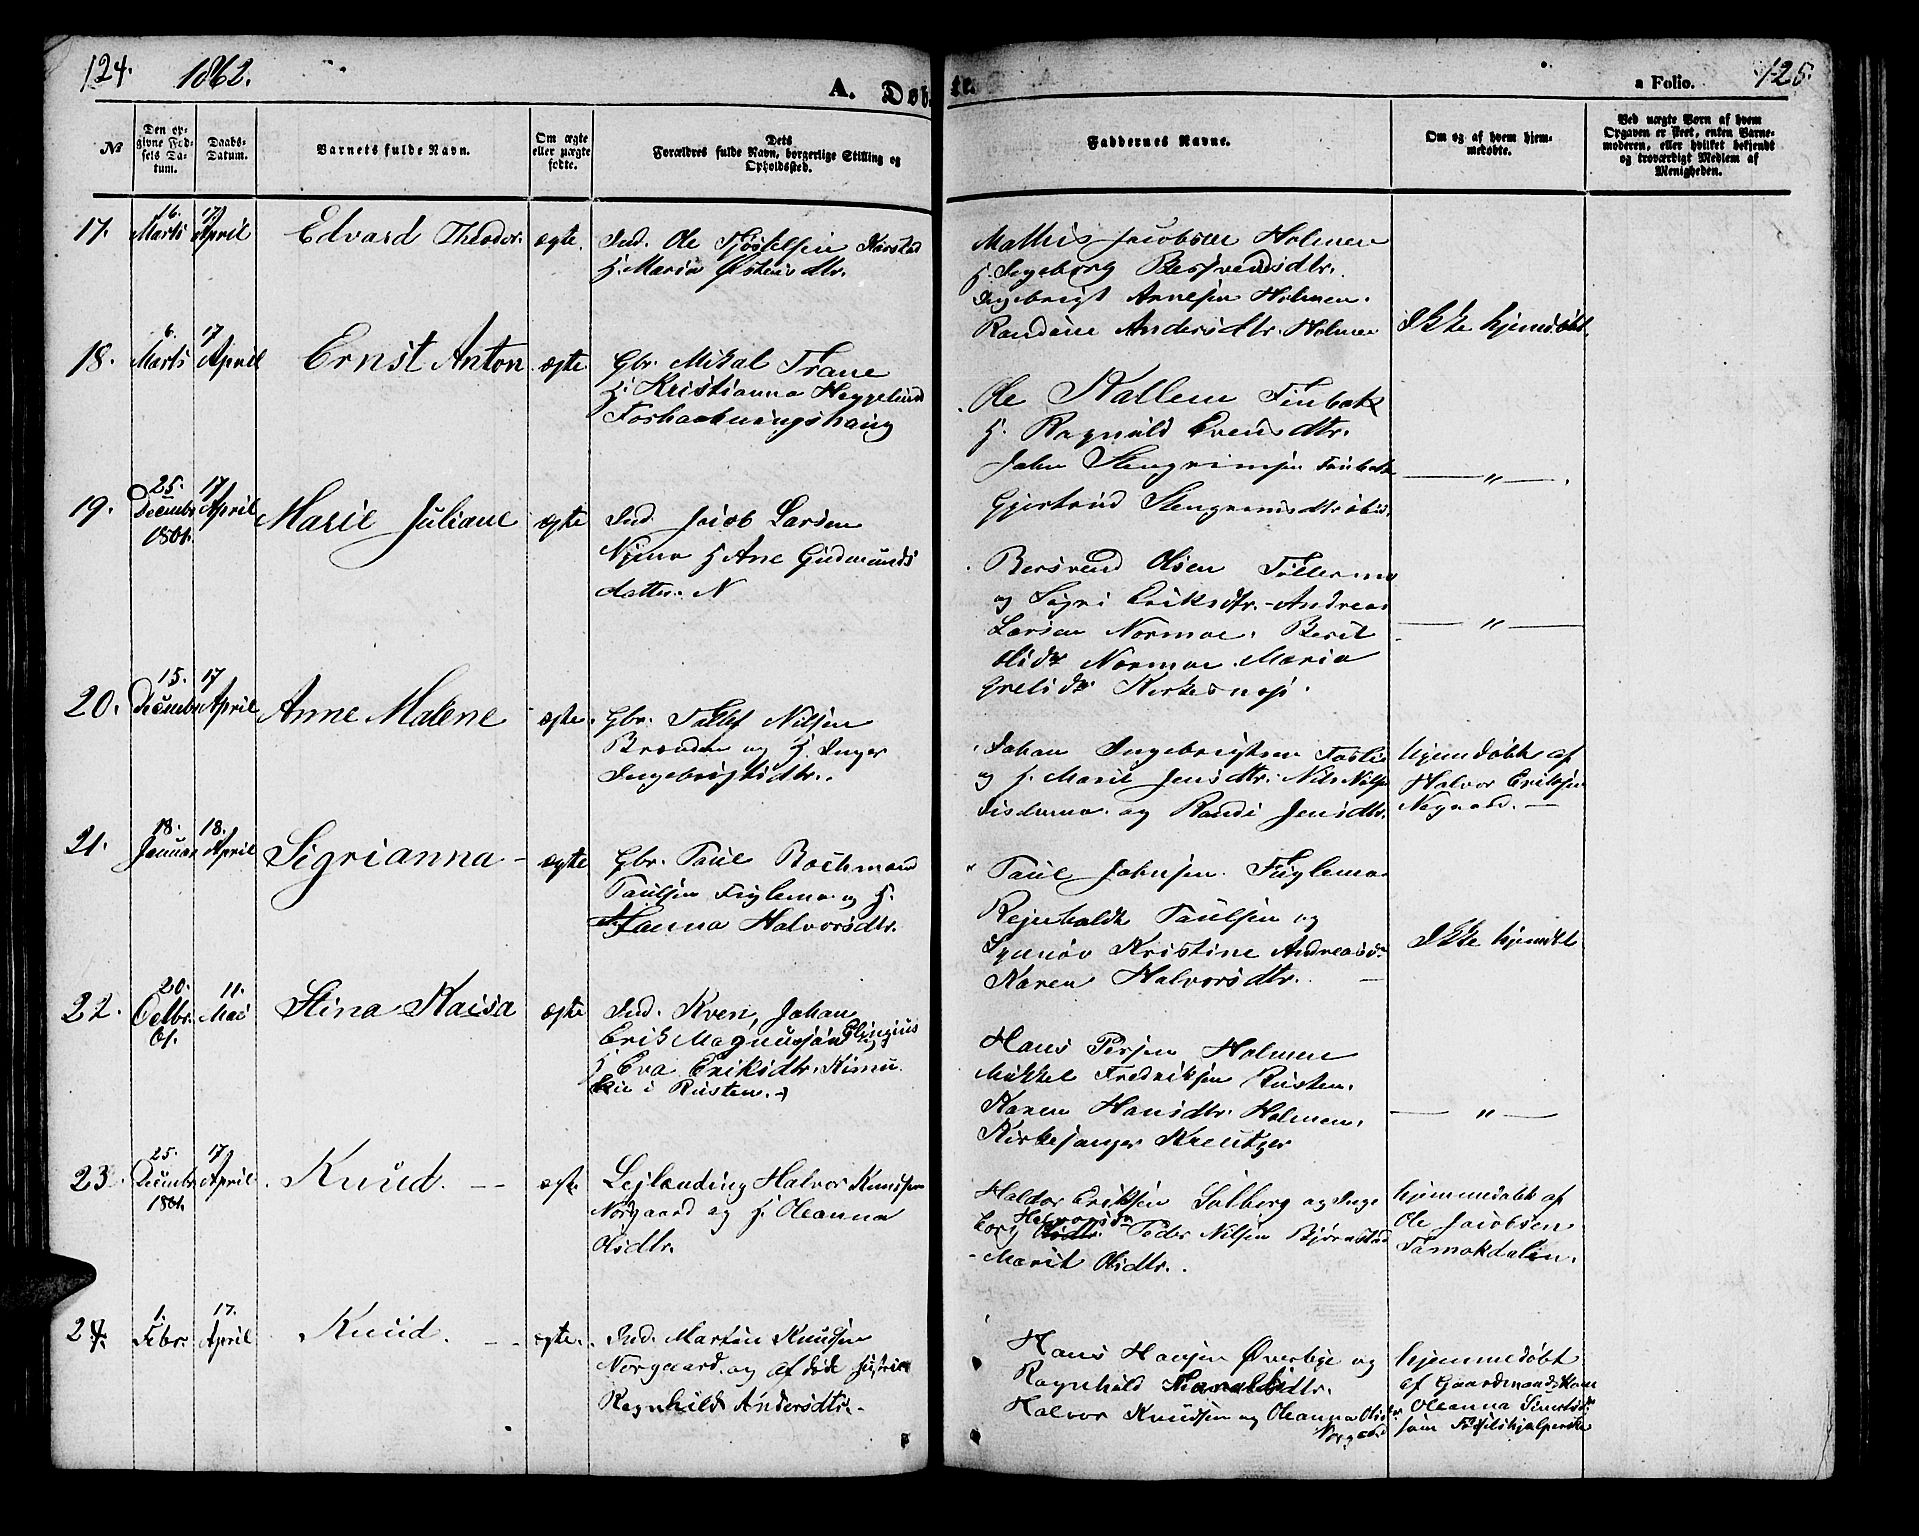 124.
1862.
A. Døb-
te.
a Folio.
125.
No
Den op-
givne Fød-
sels Da-
tum.
Daabs-
Datum.
Barnets fulde Navn.
Om ægte
eller uægte
fødte.
Dets
Forældres fulde Navn, borgerlige Stilling og
Opholdssted.
Faddernes Navne.
Om og af hvem hjem-
medøbte.
Ved uægte Børn af hvem
Opgaven er skeet, enten Barne-
moderen, eller hvilket bekjendt
og troværdigt Medlem af
Menigheden.
17.
16.
Marts
17.
April
Edvard Theodor.
ægte.
Ind. Ole
H. Maria Østensdtr.
Mathis Jacobsen Holmen
H. Ingeborg Bersvendsdtr.
Ingebrigt Arnesen Holmen.
Randine Andersdtr. Holmen
Ikke hjemdøbt.
18.
6.
Marts
17
April
Ernst Anton
ægte
Gbr. Mikal Trane
H. Kristianna Heggelund
Forhaabningshaug
Ole Kallem Finbak
H. Ragnild Evensdtr.
John Stengrimsen Finbak
Gjertrud Stengrimsdtr
— " —.
19.
25.
Decembr
1861.
17
April
Marie Juliane
ægte
Ind. Jacob Larsen
Njemo H Ane Gudmunds
datter. N
Bersvend Olsen
og Sigri Eriksdtr. - Andreas
Larsen Normoe. Berit
Olsdr Normoe. Maria
— " —
20.
15.
Decembr
17
April
Anne Malene
ægte.
Gbr. Tollef Nilsen
Brænden og H. Inger
Ingebrigtsdtr.
Johan Ingebrigtsen Foslie
og H. Marit Jensdtr. Nils Nilsen
og Randi Jensdtr.
hjemdøbt af
Halvor Eriksen
Nygaard. —
21.
18.
Januar
18.
April
Sigrianna -
ægte
Gbr. Paul Bachmand
Paulsen Fuglemo og H.
Hanna Halvorsdtr.
Paul Johnsen Fuglemo
Rejnholdt Paulsen og
Synnøv Kristine Andreasdr
Karen Halvorsdtr.
Ikke hjemdbt
22.
20.
Octbr.
61.
11.
Mai
Stina Kaisa
ægte
Ind. Kven, Johan
Erik Magnussøn
H Eva Eriksdtr.
i Rusten.
Hans Persen Holmen
Mikkel Fredriksen Rusten.
Karen Hansdtr. Holmen.
Kirkesanger Kreutzer
— " —
23.
25.
Decembr
1861.
17
April
Knud. - -
ægte
Lejlænding Halvor Knudsen
Norgaard og H. Oleanna
Olsdtr.
Haldor Eriksen Solberg og Inge
borg Halvorsdr Peder Nilsen Bjørnstad
- Marit Olsdtr.
hjemmedøbt af
Ole Jacobsen
Tamokdalen.
24.
1.
Febr.
17.
April
Knud. - -
ægte.
Ind. Martin Knudsen
Norgaard og af død Hustrue
Ragnhild Andersdtr. -
Hans Hansen Øverbye og
Ragnhild
Halvor Knudsen og Oleanna Olsdtr
Norgaard
hjemmedøbt
af Gaardmandskone
Oleanna Simonsdr
som Fødselshjælperske